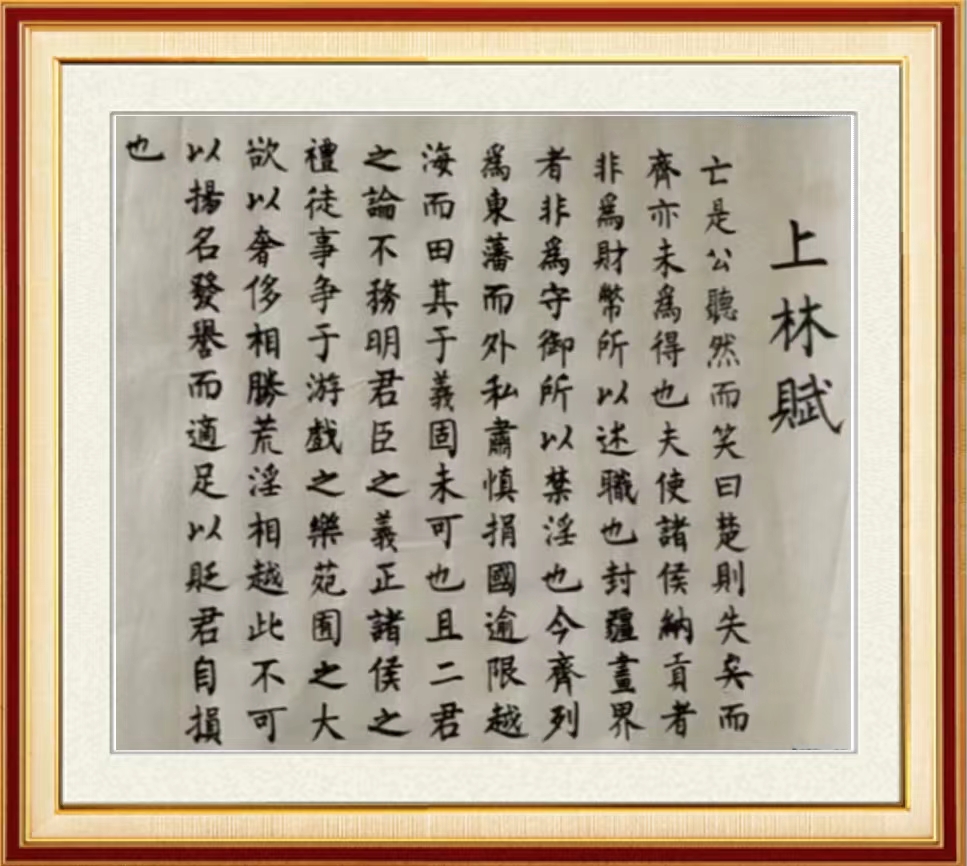 上林賦
亡是公聽然而笑曰楚則失矣而
齊亦未爲得也夫使諸侯納貢者
非爲財幣所以述職也封疆畫界
者非爲守御所以禁淫也今齊列
爲東藩而外私肅慎捐國逾限越
海而田其于義固未可也且二君
之論不務明君臣之義正諸侯之
禮徒事争于游戲之樂苑囿之大
欲以奢侈相勝荒淫相越此不可
以揚名發譽而適足以貶君自損
也